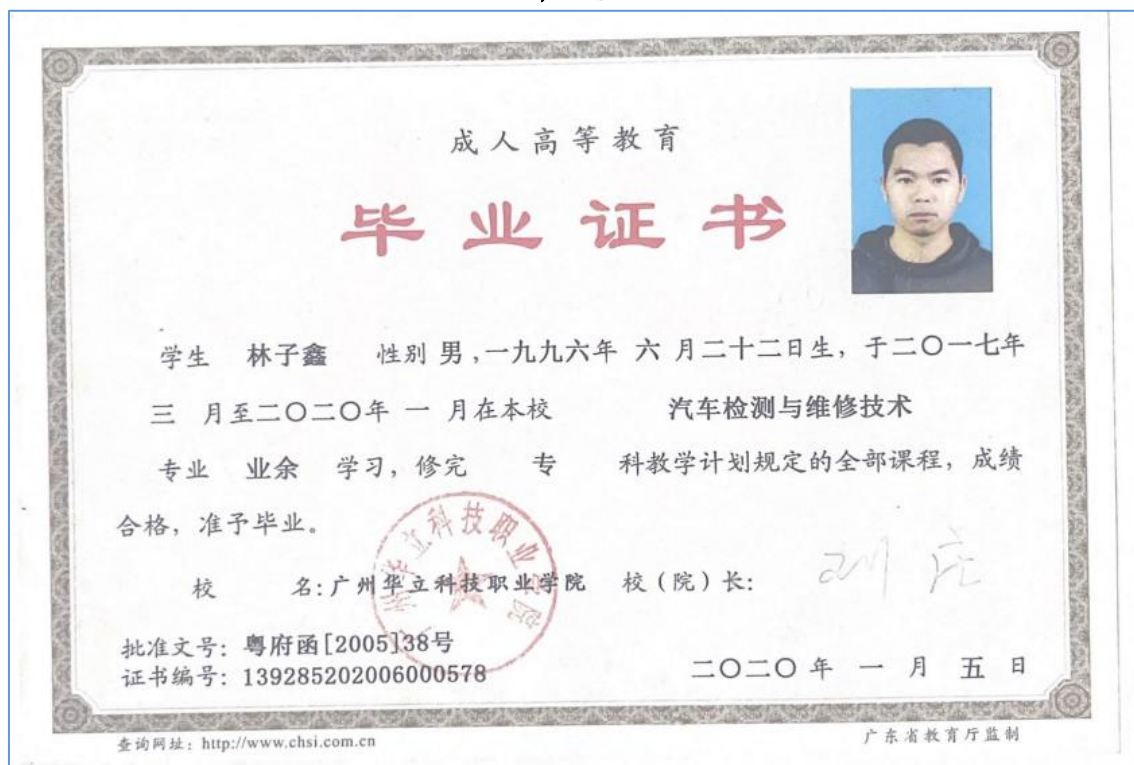 成人高等教育
毕业证书
学生 林子鑫 性别 男,一九九六年 六 月二十二日生，于二〇一七年
三 月至二〇二〇年 一 月在本校 汽车检测与维修技术
专业 业余 学习，修完 专 科教学计划规定的全部课程，成绩
合格，准予毕业。
校 名:广州华立科技职业学院 校（院）长:
批准文号: 粤府函[2005]38号
证书编号: 139285202006000578
二〇二〇年 一 月 五 日
查询网址: http://www.chsi.com.cn
广东省教育厅监制
广州华立科技职业学院